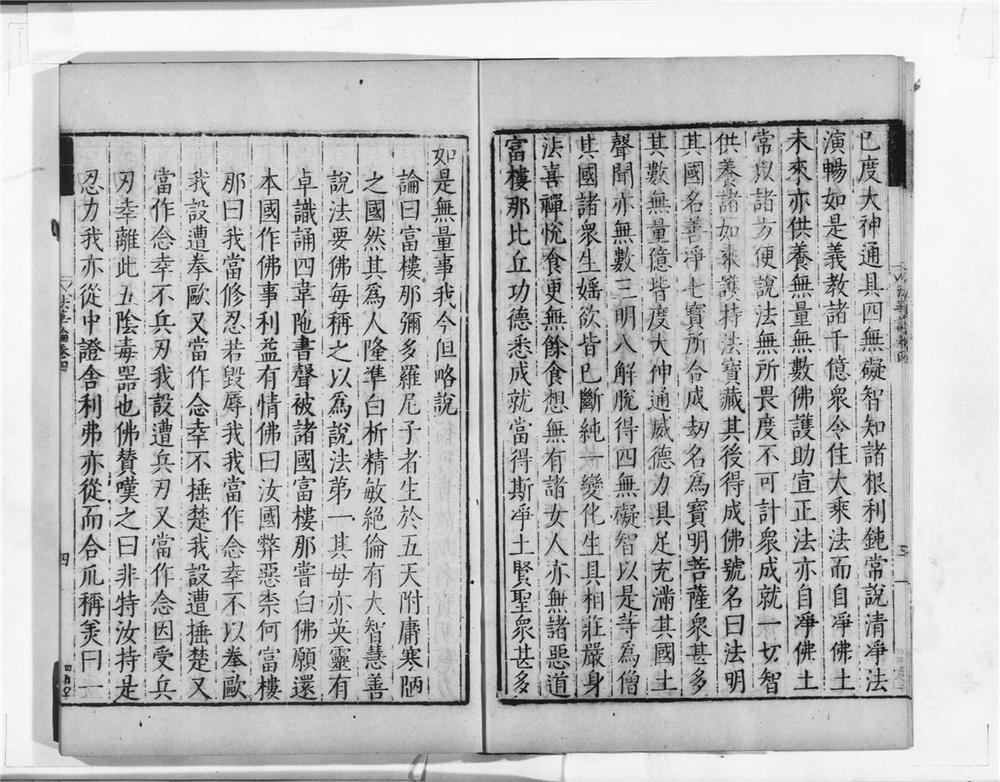 已度大神通具四無礙智知諸根利鈍常說清凈法
演暢如是義教諸千億衆令住大乘法而自凈佛土
未來亦供養無量無數佛護助宣正法亦自凈佛土
常以諸方便說法無所畏度不可計衆成就一切智
供養諸如來護持法寶藏其後得成佛號名曰法明
其國名善凈七寶所合成劫名爲寶明菩薩衆甚多
其數無量億皆度大神通威德力具足充滿其國土
聲聞亦無數三明八解脫得四無礙智以是等爲僧
其國諸衆生婬欲皆已斷純一變化生具相莊嚴身
法喜禪悅食更無餘食想無有諸女人亦無諸惡道
富樓那比丘功德悉成就當得斯凈土賢聖衆甚多
如是無量事我今但略說
論曰富樓那彌多羅尼子者生於五天附庸寒陋
之國然其爲人隆準白析精敏絕倫有大智慧善
說法要佛每稱之以爲說法第一其母亦英靈有
卓識誦四韋陁書聲被諸國富樓那嘗白佛願還
本國作佛事利益有情佛曰汝國弊惡柰何富樓
那曰我當修忍若毀辱我我當作念幸不以拳歐
我設遭拳歐又當作念幸不捶楚我設遭捶楚又
當作念幸不兵刃我設遭兵刃又當作念因受兵
刃幸離此五陰毒器也佛賛嘆之曰非特汝持是
忍力我亦從中證舍利弗亦從而合爪稱羙曰一
四